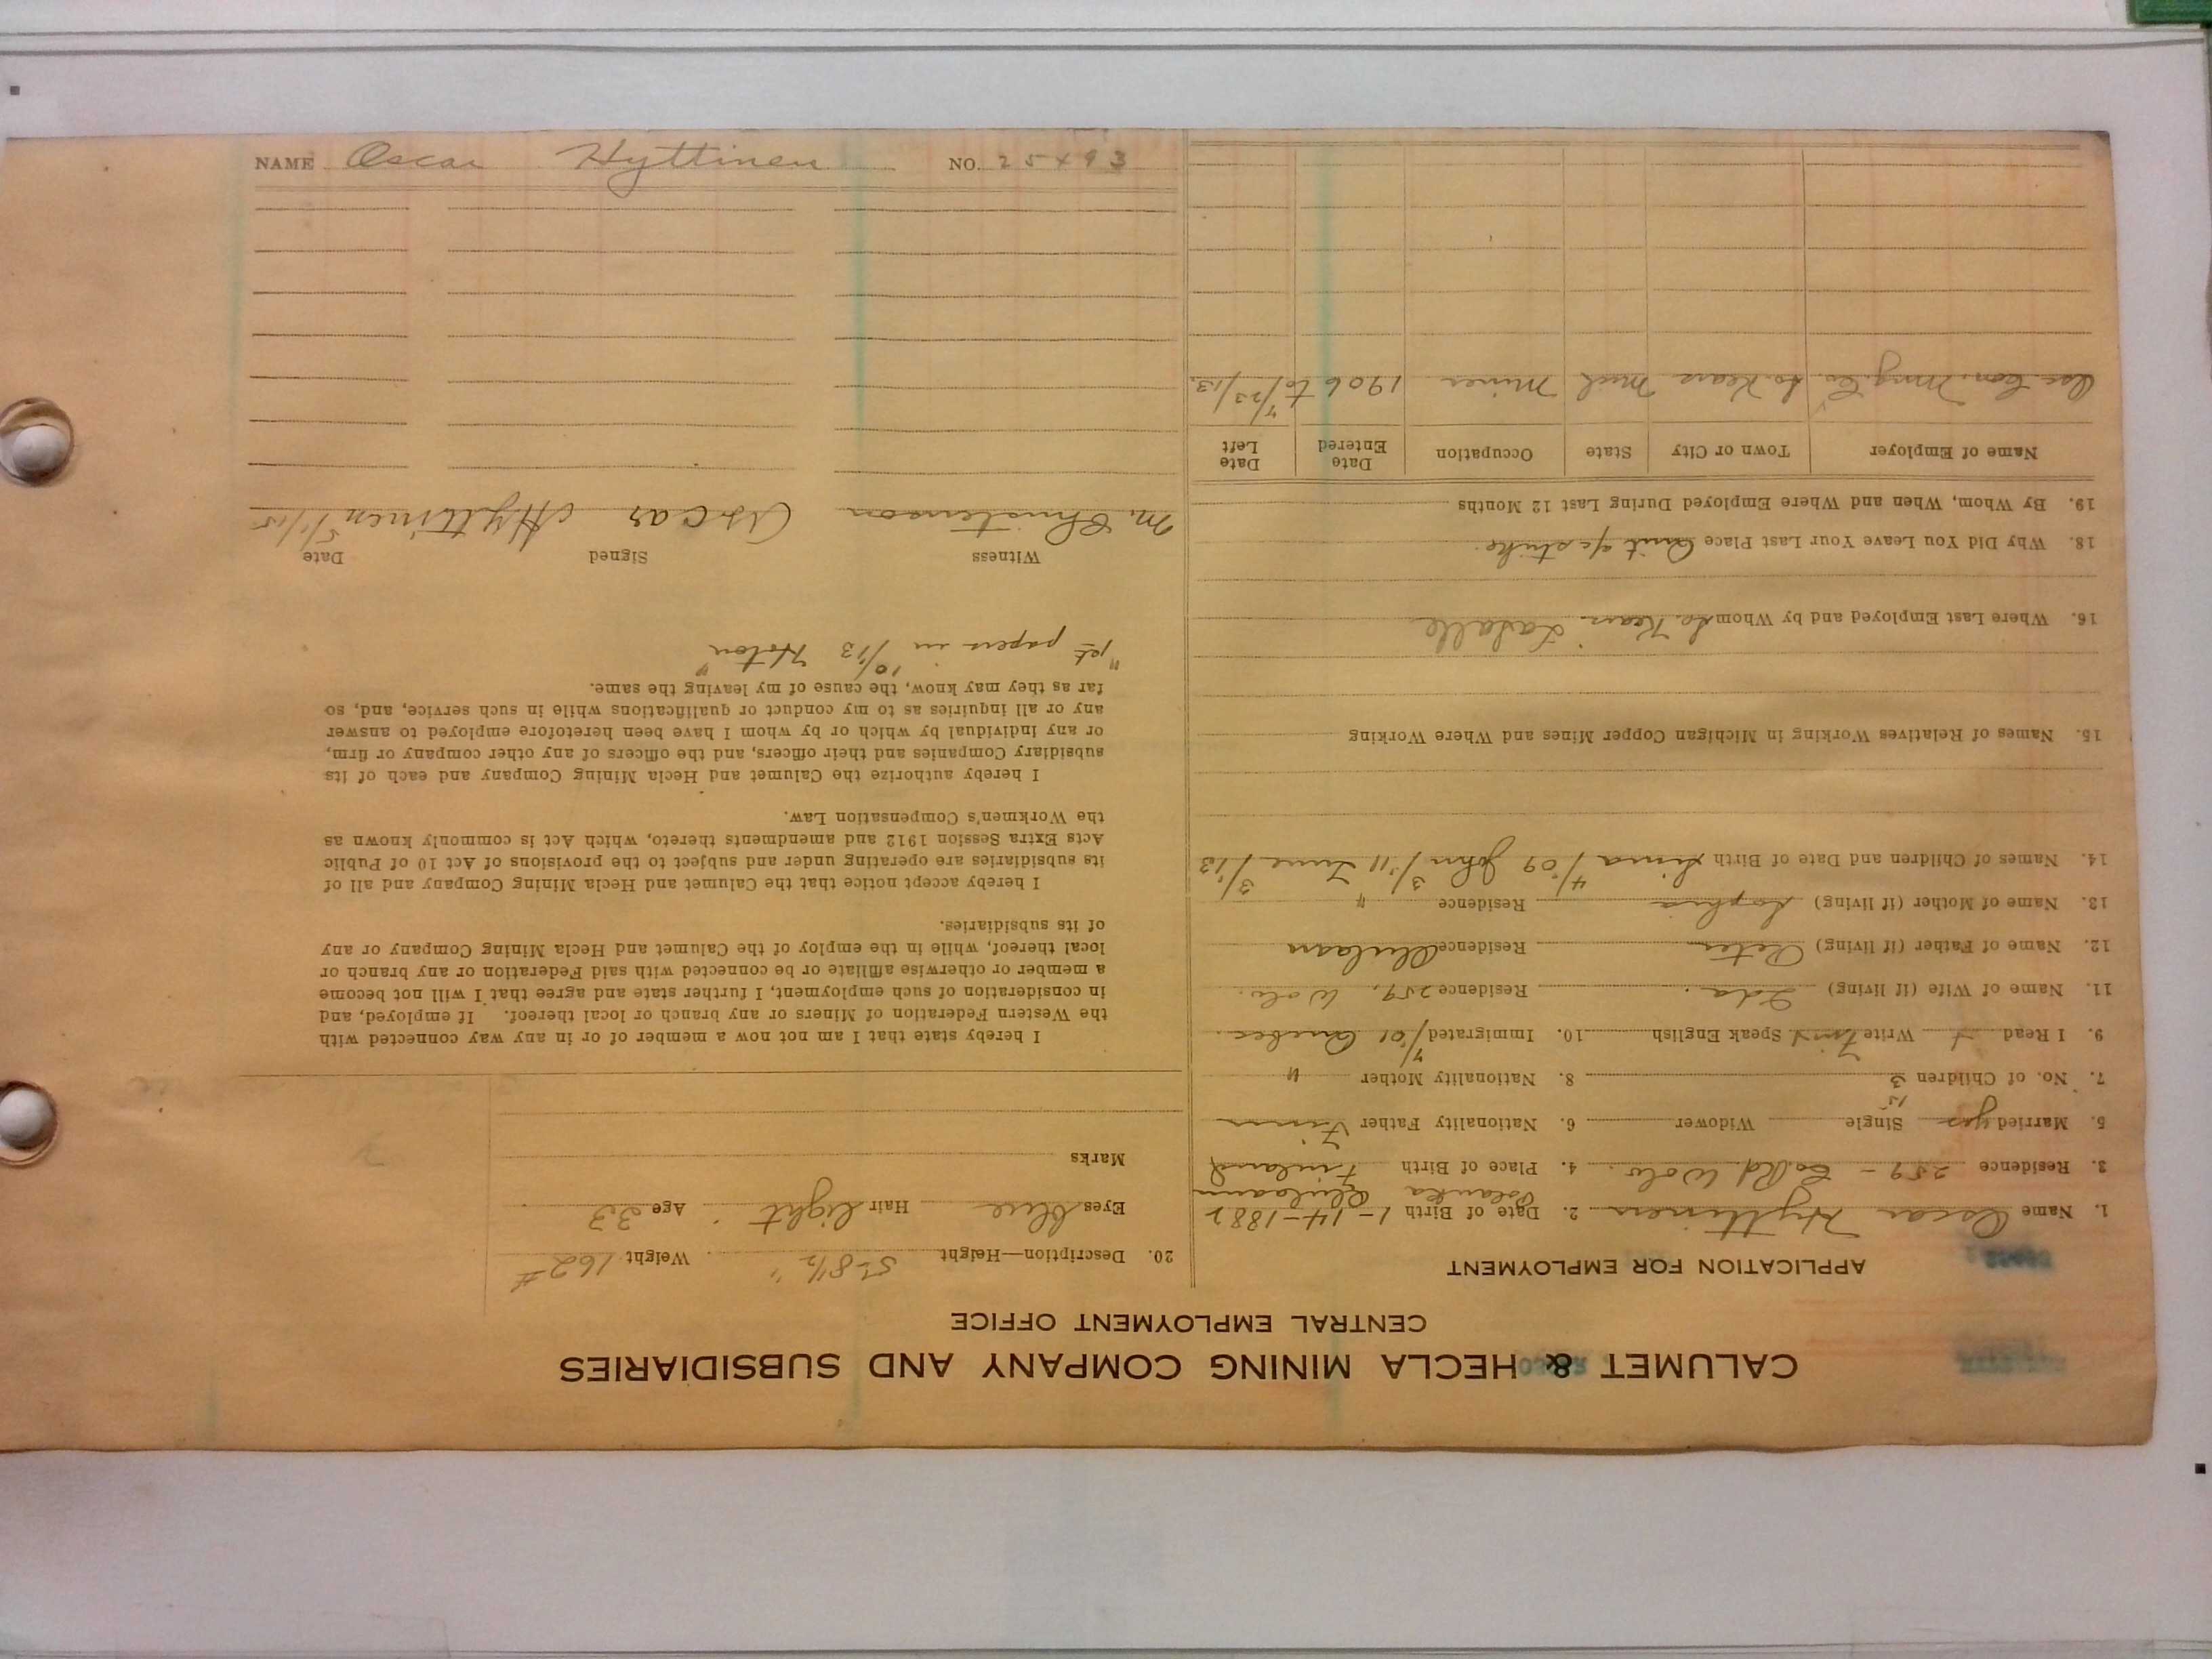 CALUMET & HECLA MINING COMPANY AND SUBSIDIARIES
CENTRAL EMPLOYMENT OFFICE
APPLICATION FOR EMPLOYMENT
1. Name Oscar Hyttinen 2. Date of Birth 1-14-1882
3. Residence 259 - Wolv. 4. Place of Birth Finland
5. Married yes Single Widower 6. Nationality Father Finn
7. No. of Children 3 8. Nationality Mother "
9. I Read Write Speak English 10. Immigrated Quebec
11. Name of Wife (if living) Ida. Residence 259, Wolv.
12. Name of Father (if living) Peter Residence
13. Name of Mother (if living) Sophia Residence "
14. Names of Children and Date of Birth 4/'09 John 3/'11 3/'13
15. Names of Relatives Working in Michigan Copper Mines and Where Working
16. Where Last Employed and by Whom So. Kear. LaSalle
18. Why Did You Leave Your Last Place Quit a/c strike.
19. By Whom, When and Where Employed During Last 12 Months
Name of Employer Town or City State Occupation Date Entered Date Left
Osc. Con. Mng. Co. So. Kear Mich Miner 1906 to 7/23/13.
20. Description—Height 5-8½" Weight 162#
Eyes blue Hair light Age 33
Marks
I hereby state that I am not now a member of or in any way connected with
the Western Federation of Miners or any branch or local thereof. If employed, and
in consideration of such employment, I further state and agree that I will not become
a member or otherwise affiliate or be connected with said Federation or any branch or
local thereof, while in the employ of the Calumet and Hecla Mining Company or any
of its subsidiaries.
I hereby accept notice that the Calumet and Hecla Mining Company and all of
its subsidiaries are operating under and subject to the provisions of Act 10 of Public
Acts Extra Session 1912 and amendments thereto, which Act is commonly known as
the Workmen's Compensation Law.
I hereby authorize the Calumet and Hecla Mining Company and each of its
subsidiary Companies and their officers, and the officers of any other company or firm,
or any individual by which or by whom I have been heretofore employed to answer
any or all inquiries as to my conduct or qualifications while in such service, and, so
far as they may know, the cause of my leaving the same.
"1st papers in 10/'13 Hoton"
Witness Signed Date
M. Christenson Oscar Hyttinen 5/1/15
NAME Oscar Hyttinen NO. 25493